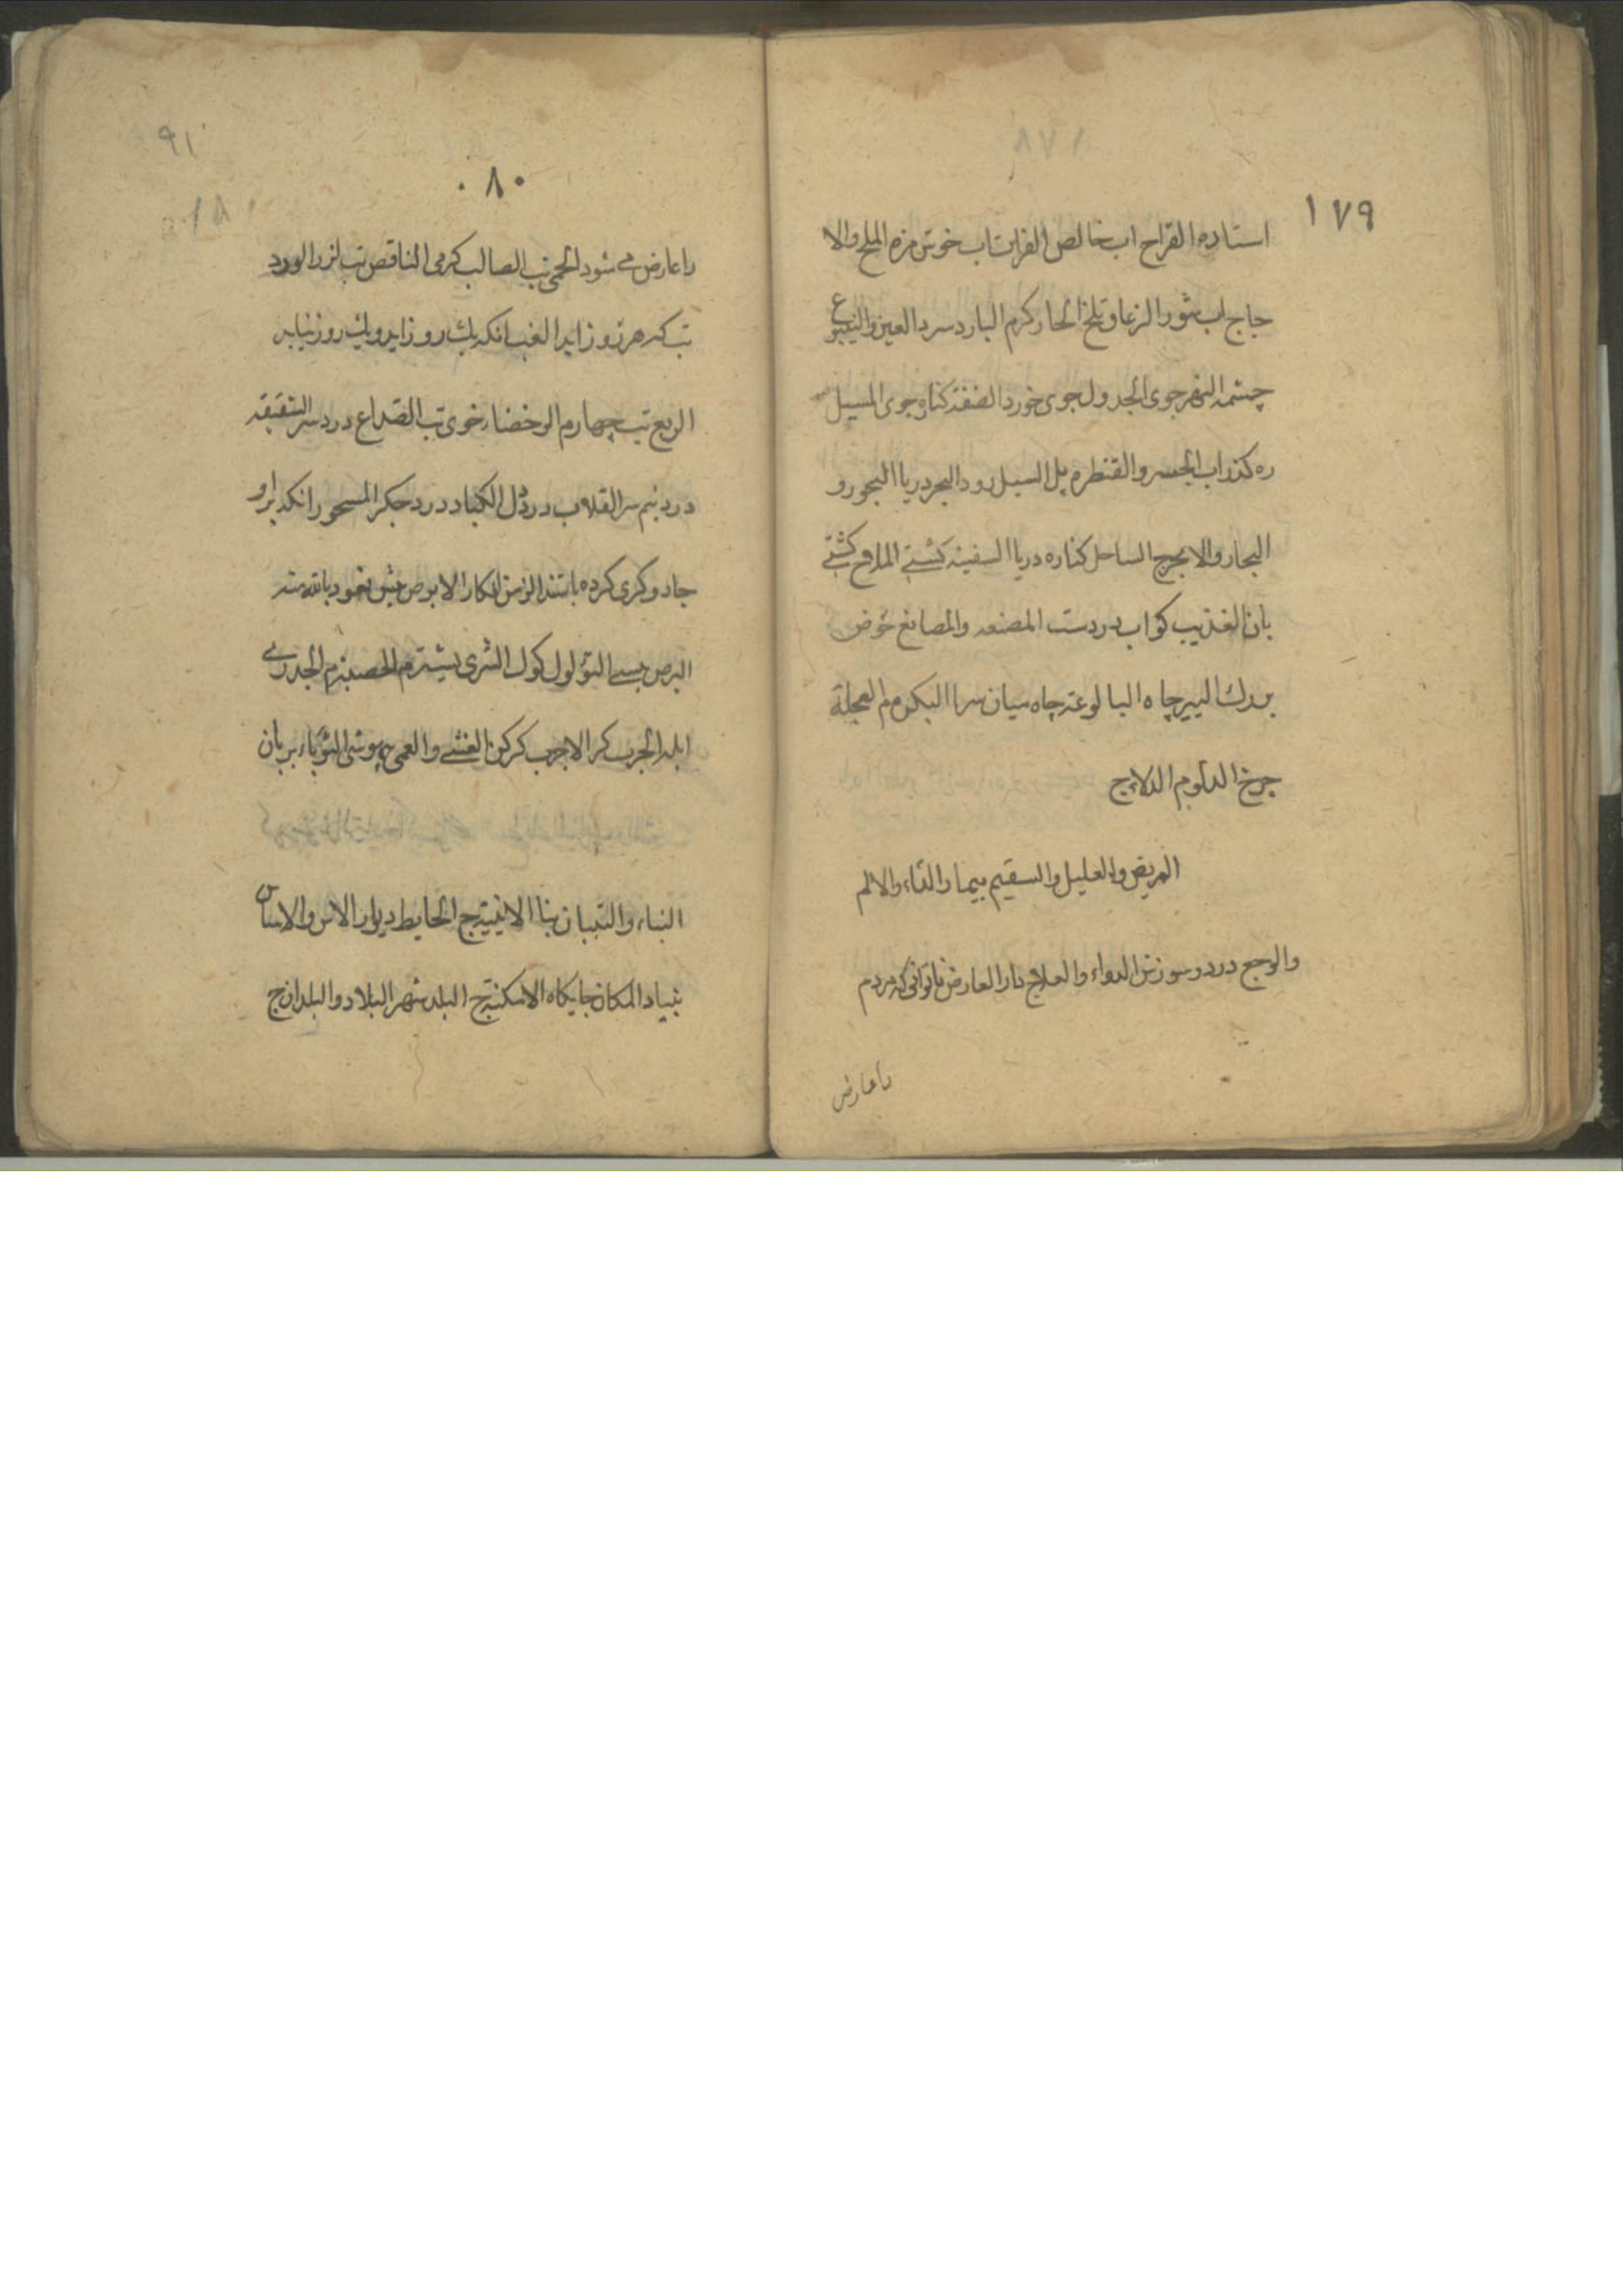 ١٧٩
استاده القراح اب خالص الفرات اب خوش مزه الملح والا
جاج اب شور الزعاق تلخ الحار كرم البارد سرد العين والينبوع
چشمه النهر جوى الجدول جوى خورد الضفة كناره جوى المسيل
ره كذر اب الجسر والقنطره پل السيل رود البحر دريا البحور و
البحار والابحر ج الساحل كناره دريا السفينه كشتى الملاح كشتى
بان اب در دست المصنعه والمصانع حوض
بزرك البير چاه البالوعة چاه ميان سرا البكره م العجلة
چرخ الدلو م الدلاء ج
المريض والعليل والسقيم بيمار الداء والالم
والوجع درد وسوزش الدواء والعلاج دار العارض ناتوانى كه مردم
را عارض
٩١
٨٠
١٨١
را عارض مى شود الحمى تب الصالب كرمى الناقص تب لرز الورد
تب كه هر روز ايد الغب انكه يك روز ايد ويك روز نيايد
الربع تب چهارم الرخضا خوى تب الصداع درد سر الشقيقه
درد نيم سر القلاب درد دل الكباد درد جكر المسحور انكه براو
جادوكرى كرده باشند الزمن الابرص پيش نعوذ بالله منه
البرص پيسى الثؤلول كوك الشرى الحصبه الجدرى
ابله الجرب كر الاجرب كركن الغشى والغمى بيهوشى الثؤباء
البناء والبنيان بنا الابنية ج الحايط ديوار الاس والاساس
بنياد المكان جايكاه الامكنة ج البلد شهر البلاد والبلدان ج